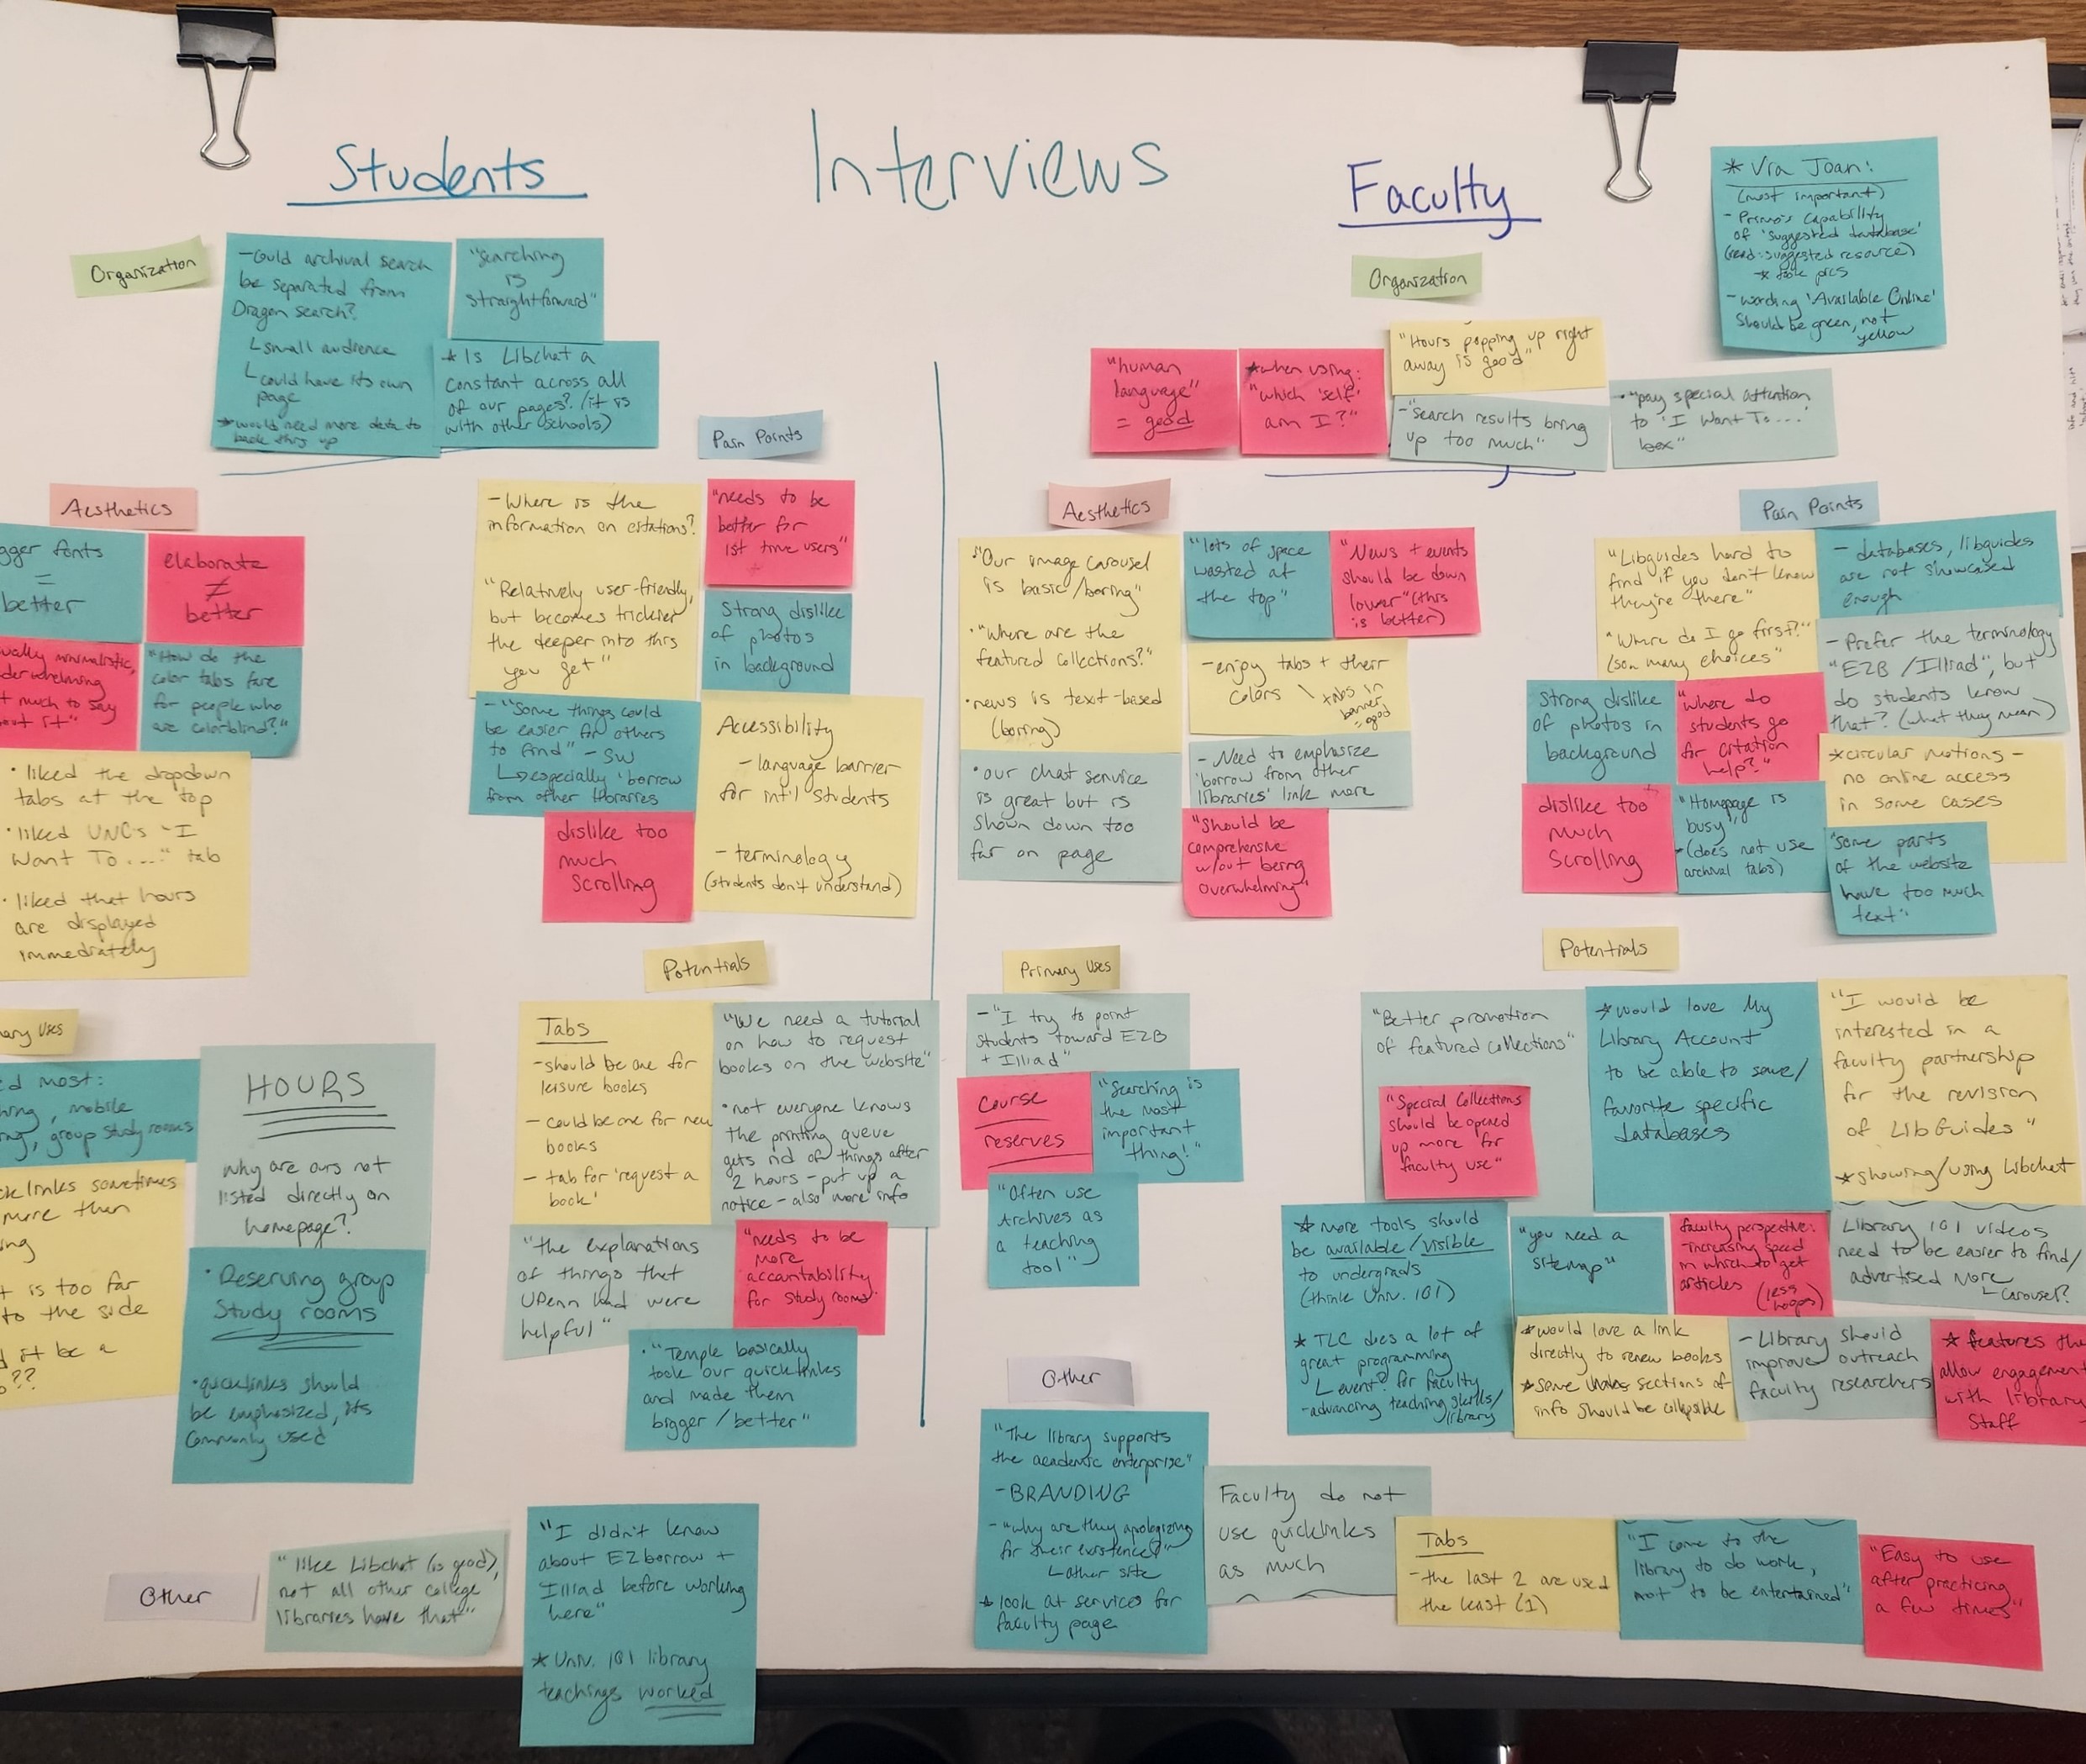 Interviews
Students
Organization
-Could archival search
be separated from
Dragon search?
↳small audience
↳could have its own
page
*would need more data to
back this up
"Searching
is
straightforward"
* Is Libchat a
constant across all
of our pages? (it is
with other schools)
Aesthetics
gger fonts
=
better
elaborate
≠
better
ually minimalistic,
derwhelming
t much to say
out it"
"How do the
color tabs fare
for people who
are colorblind?"
• liked the dropdown
tabs at the top
• liked UNC's "I
Want To...." tab
• liked that hours
are displayed
immediately
Pain Points
- Where is the
information on citations?
"Relatively user-friendly,
but becomes trickier
the deeper into this
you get"
"needs to be
better for
1st time users"
Strong dislike
of photos
in background
- "Some things could
be easier for others
to find" - SW
↳especially 'borrow
from other libraries
Accessibility
- language barrier
for int'l students
- terminology
(students don't understand)
dislike too
much
Scrolling
ary Uses
ed most:
, mobile
ng, group study rooms
ck links sometimes
more than
ng
t is too far
to the side
d it be a
??
HOURS
why are ours not
listed directly on
homepage?
• Reserving group
Study rooms
•quicklinks should
be emphasized, its
commonly used
Potentials
Tabs
-should be one for
leisure books
- could be one for new
books
- tab for 'request a
book'
"We need a tutorial
on how to request
books on the website"
•not everyone knows
the printing queue
gets rid of things after
2 hours - put up a
notice - also more info
"the explanations
of things that
UPenn had were
helpful"
"needs to be
more
accountability
for study rooms"
• "Temple basically
took our quicklinks
and made them
bigger / better"
Other
"like Libchat (is good),
not all other college
libraries have that"
"I didn't know
about EZborrow +
Illiad before working
here"
* Univ. 101 library
teachings worked
Faculty
* Via Joan:
(most important)
- Primo's capability
of 'suggested database'
(read: suggested resource)
* took pics
- wording 'Available Online'
Should be green, not
yellow
Organization
"human
language"
= good
*when using:
"which 'self'
am I?"
"Hours popping up right
away is good"
- "search results bring
up too much"
• "pay special attention
to 'I Want To...'
box"
Aesthetics
"Our image carousel
is basic/boring"
• "Where are the
featured collections?"
• news is text-based
(boring)
"lots of space
wasted at
the top"
"News + events
should be down
lower" (this
is better)
-enjoy tabs + their
colors
tabs in
banner
= good
• our chat service
is great but is
shown down too
far on page
- Need to emphasize
'borrow from other
libraries' link more
"Should be
comprehensive
w/out being
overwhelming"
Pain Points
"Libguides hard to
find if you don't know
they're there"
"Where do I go first?"
(soo many choices"
- databases, libguides
are not showcased
enough
- Prefer the terminology
"EZB / Illiad", but
do students know
that? (what they mean)
Strong dislike
of photos in
background
"where do
students go
for citation
help?"
*circular motions -
no online access
in some cases
dislike too
much
Scrolling
"Homepage is
busy"
(does not use
archival tabs)
"Some parts
of the website
have too much
text"
Primary Uses
- "I try to point
students toward EZB
+ Illiad"
Course
reserves
"Searching is
the most
important
thing!"
"Often use
Archives as
a teaching
tool"
Potentials
"Better promotion
of featured collections"
"Special Collections
should be opened
up more for
faculty use"
*would love My
Library Account
to be able to save/
favorite specific
databases
"I would be
interested in a
faculty partnership
for the revision
of LibGuides"
*showing/using Libchat
* more tools should
be available/visible
to undergrads
(think Univ. 101)
* TLC does a lot of
great programming
↳ event? for faculty
-advancing teaching skills/
library
"you need a
sitemap"
faculty perspective:
-increasing speed
in which to get
articles (less
hoops)
Library 101 videos
need to be easier to find/
advertised more
↳carousel?
*would love a link
directly to renew books
*some sections of
info should be collapsible
- Library should
improve outreach
faculty researchers
* features tha
allow engagement
with library
Staff
Other
"The library supports
the academic enterprise"
-BRANDING
- "why are they apologizing
for their existence?"
↳other site
* look at services for
faculty page
Faculty do not
use quicklinks
as much
Tabs
- the last 2 are used
the least (1)
"I come to the
library to do work,
not to be entertained"
"Easy to use
after practicing
a few times"